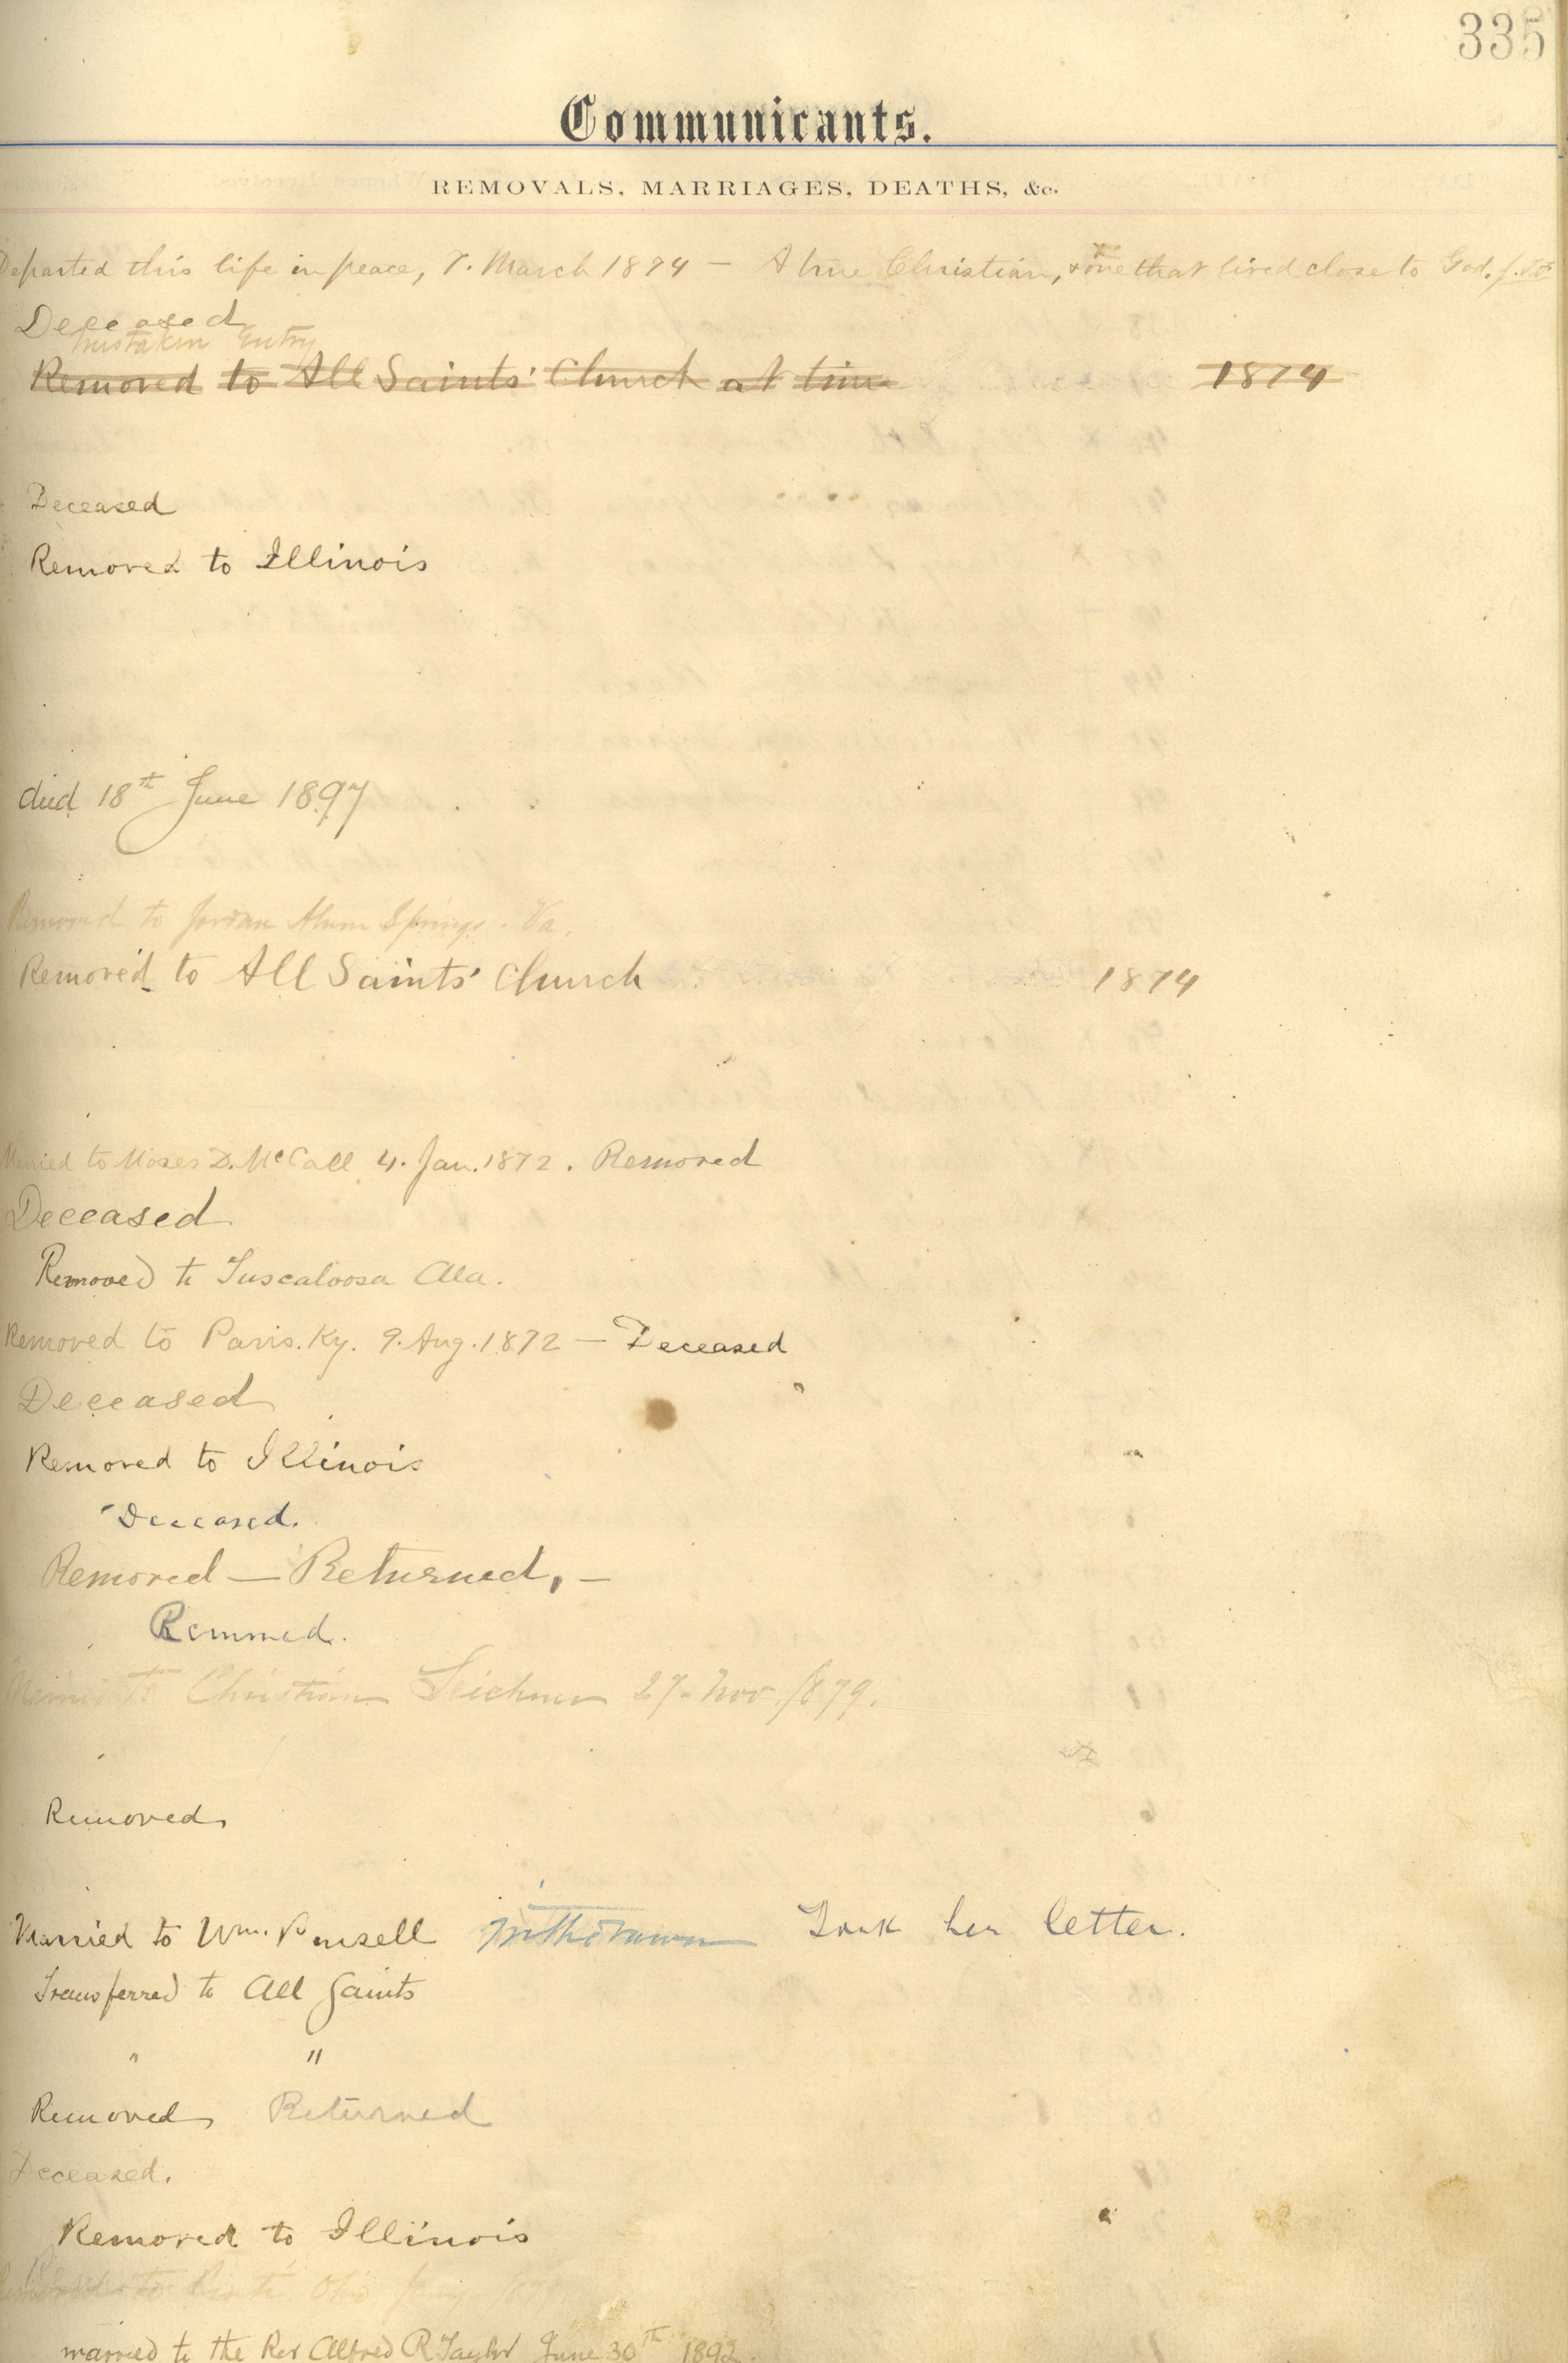 335
Communicants.
REMOVALS, MARRIAGES, DEATHS, &c.
Departed this life in peace, 7. March 1894 — A true Christian, & one that lived close to God.
Deceased
mistaken entry
Removed to All Saints' Church at time 1874
Deceased
Removed to Illinois
died 18th June 1897
Removed to Jordan Alum Springs - Va.
Removed to All Saints' Church 1874
Married to Moses D. McCall 4. Jan. 1872. Removed
Deceased
Removed to Tuscaloosa Ala.
Removed to Paris. Ky. 9. Aug. 1872 — Deceased
Deceased
Removed to Illinois
Deceased.
Removed — Returned, —
Removed.
Married to Christian 27. Nov. 1879.
Removed
Married to Wm. Withdrawn Took her letter.
Transferred to All Saints
" "
Removed Returned
Deceased.
Removed to Illinois
Removed to Ohio
married to the Rev Alfred R Taylor June 30th 1892.